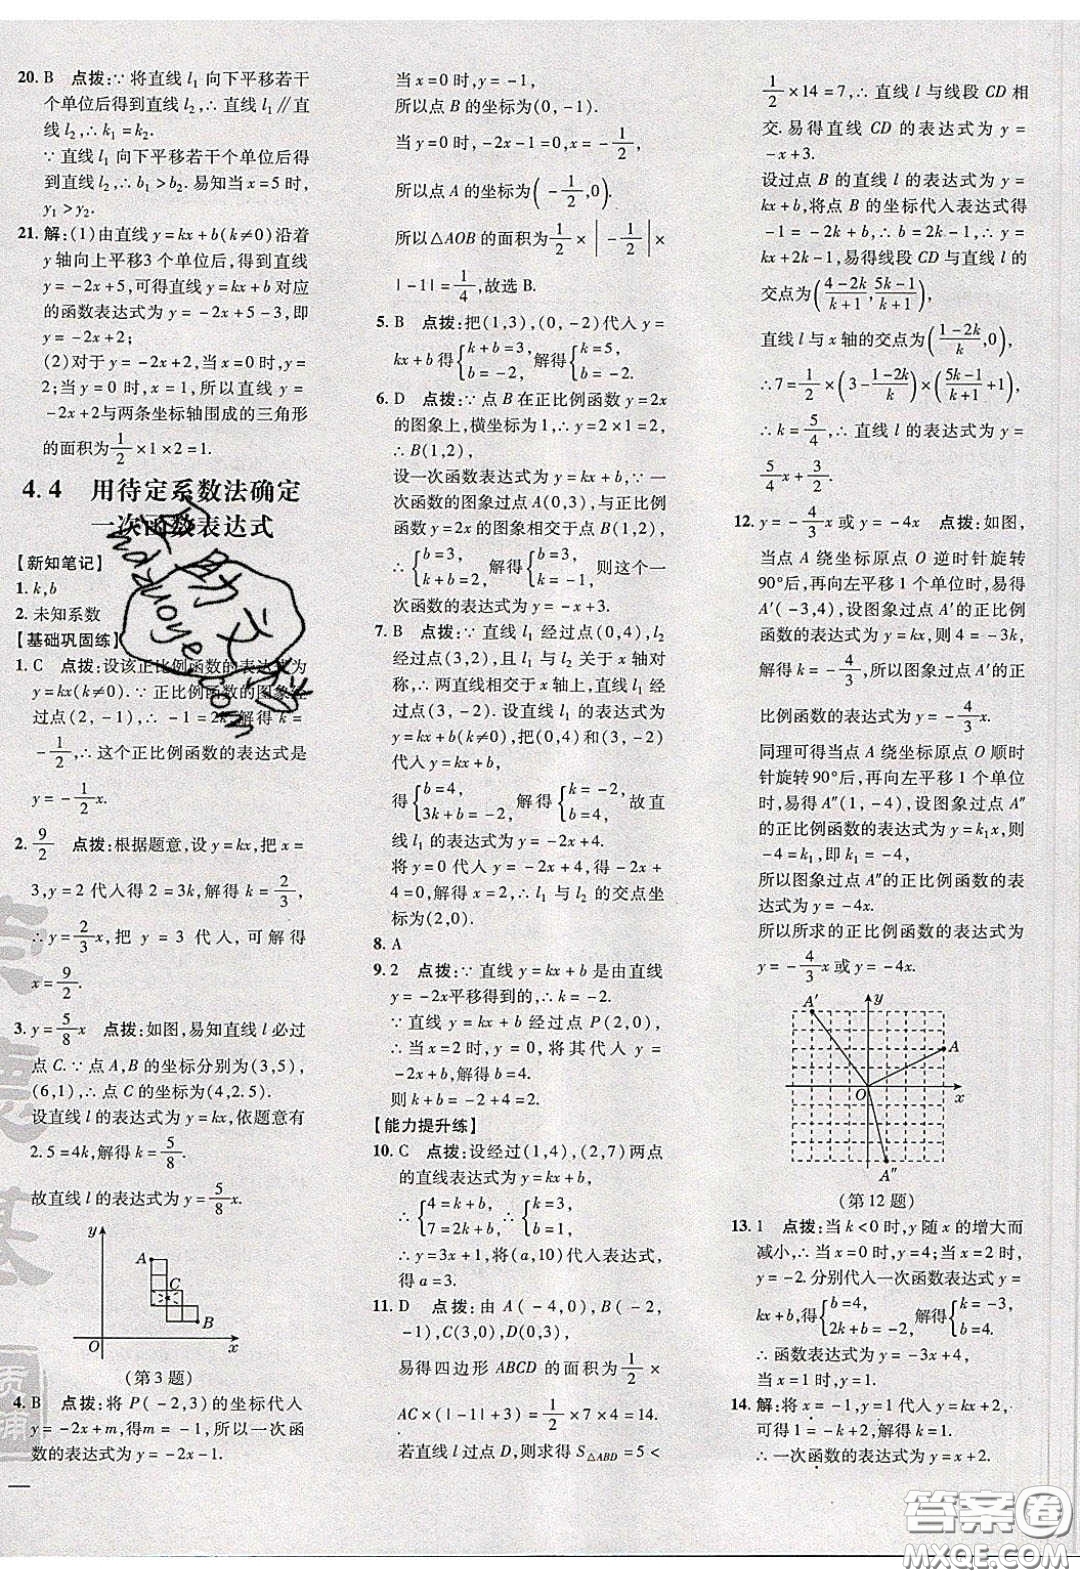 20. B 点拨:∵将直线 l₁ 向下平移若干
个单位后得到直线 l₂,∴直线 l₁∥直
线 l₂,∴k₁=k₂.
∵直线 l₁ 向下平移若干个单位后得
到直线 l₂,∴b₁>b₂.易知当 x=5 时,
y₁>y₂.
21. 解:(1)由直线 y=kx+b(k≠0)沿着
y 轴向上平移3 个单位后,得到直线
y=-2x+5,可得直线 y=kx+b 对应
的函数表达式为 y=-2x+5-3,即
y=-2x+2;
(2)对于 y=-2x+2,当 x=0 时,y=
2;当 y=0 时,x=1,所以直线 y=
-2x+2与两条坐标轴围成的三角形
的面积为 1/2×1×2=1.
4.4 用待定系数法确定
一次函数表达式
【新知笔记】
1. k,b
2. 未知系数
【基础巩固练】
1. C 点拨:设该正比例函数的表达式为
y=kx(k≠0).∵正比例函数的图象经
过点(2,-1),∴-1=2k,解得 k=
-1/2,∴这个正比例函数的表达式是
y=-1/2x.
2. 9/2 点拨:根据题意,设 y=kx,把 x=
3,y=2 代入得 2=3k,解得 k=2/3,
∴y=2/3x,把 y=3 代入,可解得
x=9/2.
3. y=5/8x 点拨:如图,易知直线 l 必过
点 C.∵点 A,B 的坐标分别为(3,5),
(6,1),∴点 C 的坐标为(4,2.5).
设直线 l 的表达式为 y=kx,依题意有
2.5=4k,解得 k=5/8.
故直线 l 的表达式为 y=5/8x.
y
A
C
B
O
x
(第 3 题)
4. B 点拨:将 P(-2,3)的坐标代入
y=-2x+m,得m=-1,所以一次函
数的表达式为 y=-2x-1.
当 x=0 时,y=-1,
所以点 B 的坐标为(0,-1).
当 y=0 时,-2x-1=0,x=-1/2,
所以点 A 的坐标为(-1/2,0).
所以△AOB 的面积为 1/2×|-1/2|×
|-1|=1/4,故选 B.
5. B 点拨:把(1,3),(0,-2)代入 y=
kx+b 得{k+b=3, b=-2, 解得{k=5, b=-2.
6. D 点拨:∵点 B 在正比例函数 y=2x
的图象上,横坐标为1,∴y=2×1=2,
∴B(1,2),
设一次函数表达式为 y=kx+b,∵一
次函数的图象过点 A(0,3),与正比例
函数 y=2x 的图象相交于点 B(1,2),
∴{b=3, k+b=2, 解得{b=3, k=-1, 则这个一
次函数的表达式为 y=-x+3.
7. B 点拨:∵直线 l₁ 经过点(0,4),l₂
经过点(3,2),且 l₁ 与 l₂ 关于 x 轴对
称,∴两直线相交于 x 轴上,直线 l₁ 过
点(3,-2).设直线 l₁ 的表达式为
y=kx+b(k≠0),把(0,4)和(3,-2)
代入 y=kx+b,
得{b=4, 3k+b=-2, 解得{k=-2, b=4. 故直
线 l₁ 的表达式为 y=-2x+4.
将 y=0 代入 y=-2x+4,得-2x+
4=0,解得 x=2,∴l₁ 与 l₂ 的交点坐
标为(2,0).
8. A
9. 2 点拨:∵直线 y=kx+b 是由直线
y=-2x平移得到的,∴k=-2.
∵直线 y=kx+b 经过点 P(2,0),
∴当 x=2 时,y=0,将其代入 y=
-2x+b,解得 b=4.
则 k+b=-2+4=2.
【能力提升练】
10. C 点拨:设经过(1,4),(2,7)两点
的直线表达式为 y=kx+b,
∴{4=k+b, 7=2k+b, ∴{k=3, b=1,
∴y=3x+1,将(a,10)代入表达式,
得 a=3.
11. D 点拨:由 A(-4,0),B(-2,
-1),C(3,0),D(0,3),
易得四边形 ABCD 的面积为 1/2×
AC×(|-1|+3)=1/2×7×4=14.
若直线 l 过点 D,则求得 S△ABD=5<
1/2×14=7,∴直线 l 与线段 CD 相
交.易得直线 CD 的表达式为 y=
-x+3.
设过点 B 的直线 l 的表达式为 y=
kx+b,将点 B 的坐标代入表达式得
-1=-2k+b,∴b=2k-1,∴y=
kx+2k-1,易得线段 CD 与直线 l 的
交点为((4-2k)/(k+1),(5k-1)/(k+1)),
直线 l 与 x 轴的交点为((1-2k)/k,0),
∴7=1/2×(3-(1-2k)/k)×((5k-1)/(k+1)+1),
∴k=5/4,∴直线 l 的表达式为 y=
5/4x+3/2.
12. y=-4/3x 或 y=-4x 点拨:如图,
当点 A 绕坐标原点 O 逆时针旋转
90°后,再向左平移 1 个单位时,易得
A′(-3,4),设图象过点 A′的正比例
函数的表达式为 y=kx,则 4=-3k,
解得 k=-4/3,所以图象过点 A′的正
比例函数的表达式为 y=-4/3x.
同理可得当点 A 绕坐标原点 O 顺时
针旋转90°后,再向左平移 1 个单位
时,易得 A″(1,-4),设图象过点 A″
的正比例函数的表达式为 y=k₁x,则
-4=k₁,即 k₁=-4,
所以图象过点 A″的正比例函数的表
达式为 y=-4x.
所以所求的正比例函数的表达式为
y=-4/3x 或 y=-4x.
A′
y
A
O
x
A″
(第 12 题)
13. 1 点拨:当 k<0 时,y 随 x 的增大而
减小,∴当 x=0 时,y=4;当 x=2 时,
y=-2.分别代入一次函数表达式 y=
kx+b,得{b=4, 2k+b=-2, 解得{k=-3, b=4.
∴函数表达式为 y=-3x+4,
当 x=1 时,y=-3+4=1.
14. 解:将 x=-1,y=1 代入 y=kx+2,
可得1=-k+2,解得 k=1.
∴一次函数的表达式为 y=x+2.
答案圈
MXQE.COM